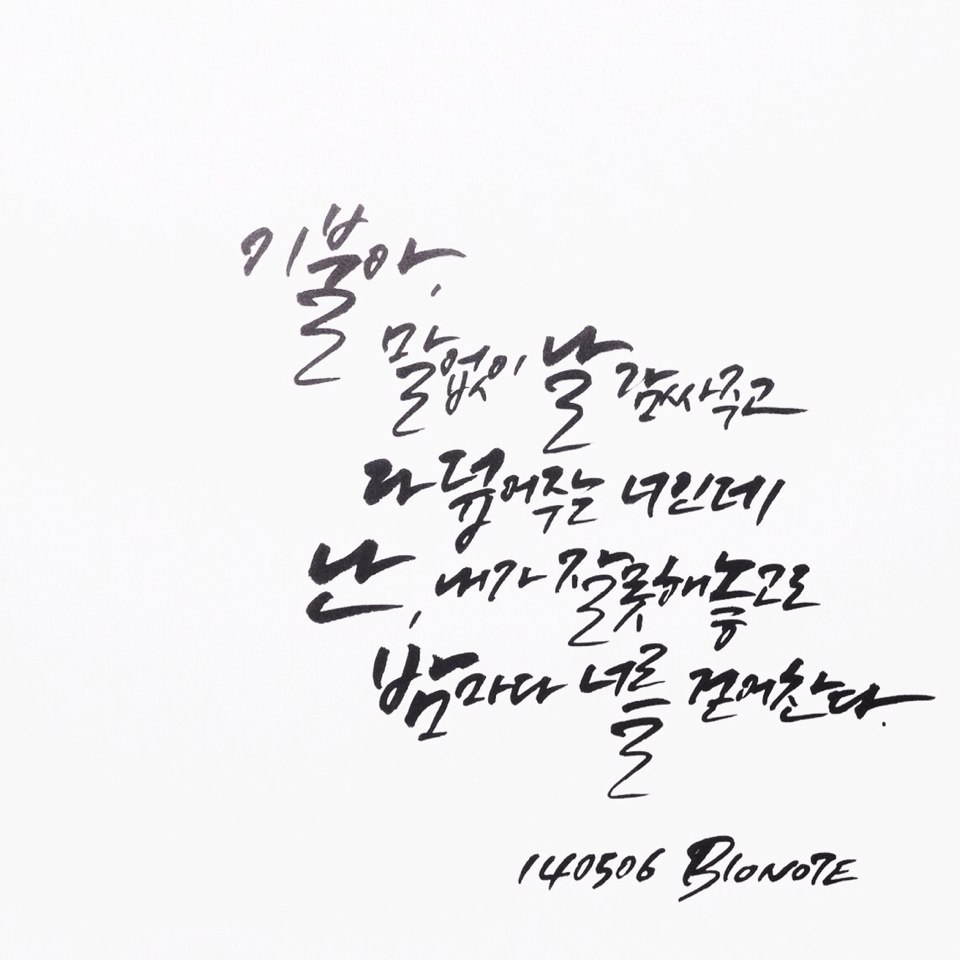 이불아,
말없이 날 감싸주고
다 덮어주는 너인데
난, 내가 잘못해놓고도
밤마다 너를 걷어찬다.
140506 BIONOTE